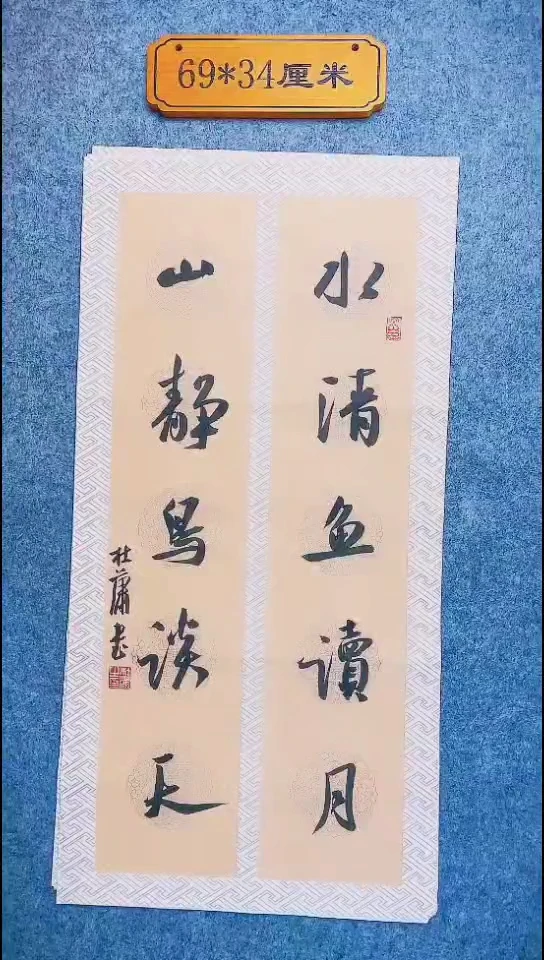 69*34厘米
水清鱼读月
山静鸟谈天
杜萧书